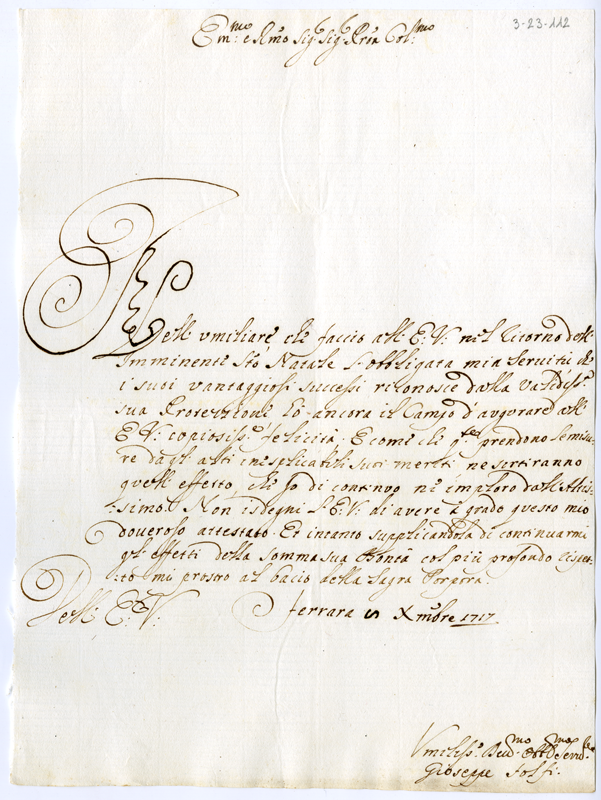 3-23-112
Em:mo e Rmo Sigr Sigr Prõn Col:mo
Nell' umiliare, che faccio all' E: V: nel ritorno dell'
Imminente Sto Natale l' obbligata mia servitù che
i suoi vantaggiosi successi riconosce dalla validiss:a
sua Protezzione hò ancora il Campo d' augurare all'
E: V: copiosiss:e felicità. E come che qste prendono le misu-
re dagl' alti inesplicabili suoi meriti ne sortiranno
quell' effetto, che io di continuo ne imploro dall' Altis-
:simo. Non isdegni l' E: V: di avere à grado questo mio
doveroso attestato. Et incanto supplicandola di continuarmi
gl' effetti della somma sua Bontà col più profondo rispet-
:to mi prostro al bacio della Sagra Porpora.
Dell' E: V: Ferrara 5 Xmbre 1717.
Umiliss:o Dev:mo Obb:mo Servre
Gioseppe Solfi.